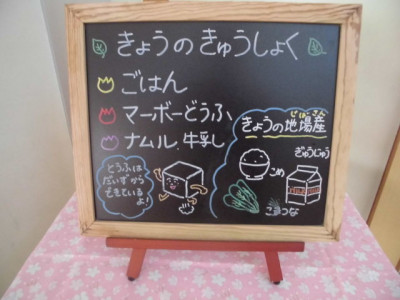 きょうのきゅうしょく
ごはん
マーボーどうふ
ナムル、牛乳
きょうの地場産
じばさん
こめ
ぎゅうにゅう
こまつな
とうふは
だいずから
できているよ!